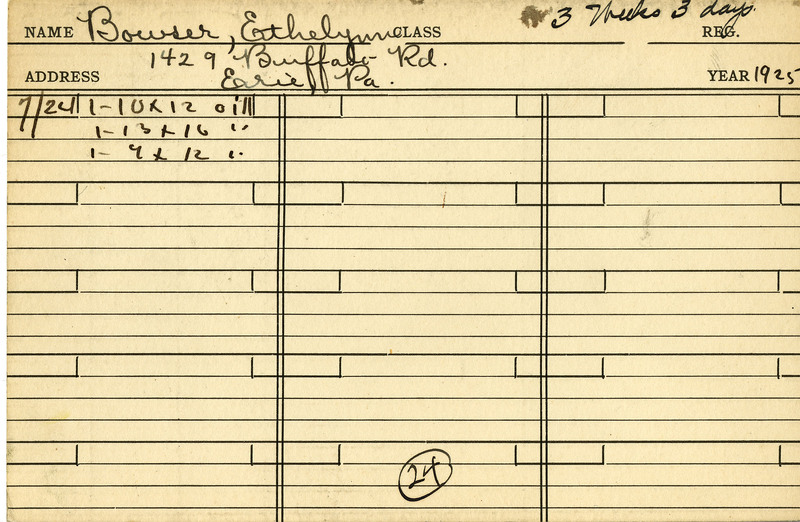 NAME Bowser, Ethelynne CLASS 3 Weeks 3 days. REG.
1429 Buffalo Rd.
ADDRESS Erie Pa. YEAR 1925
7/24 1-10x12 oill
1-13x16 "
1-9x12 "
24